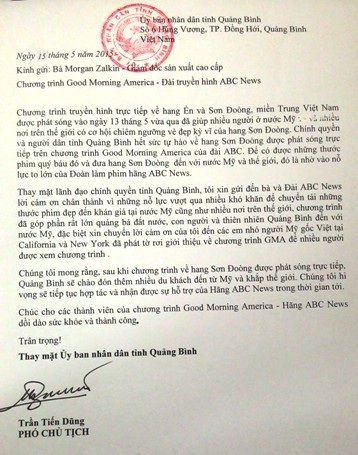 Ủy ban nhân dân tỉnh Quảng Bình
Số 6 Hùng Vương, TP. Đồng Hới, Quảng Bình
Việt Nam
Ngày 15 tháng 5 năm 2015
Kính gửi: Bà Morgan Zalkin - Giám đốc sản xuất cao cấp
Chương trình Good Morning America - Đài truyền hình ABC News
Chương trình truyền hình trực tiếp về hang Én và Sơn Đoòng, miền Trung Việt Nam
được phát sóng vào ngày 13 tháng 5 vừa qua đã giúp nhiều người ở nước Mỹ và nhiều
nơi trên thế giới có cơ hội chiêm ngưỡng vẻ đẹp kỳ vĩ của hang Sơn Đoòng. Chính quyền
và người dân tỉnh Quảng Bình hết sức tự hào về hang Sơn Đoòng được phát sóng trực
tiếp trên chương trình Good Morning America của đài ABC. Để có được những thước
phim quý báu đó và đưa hang Sơn Đoòng đến với nước Mỹ và thế giới, đó là nhờ vào nỗ
lực to lớn của Đoàn làm phim hãng ABC News.
Thay mặt lãnh đạo chính quyền tỉnh Quảng Bình, tôi xin gửi đến bà và Đài ABC News
lời cảm ơn chân thành vì những nỗ lực vượt qua nhiều khó khăn để chuyển tải những
thước phim đẹp đến khán giả tại nước Mỹ cũng như nhiều nơi trên thế giới, chương trình
đã góp phần rất lớn quảng bá đất nước, con người và thiên nhiên Quảng Bình đến với
nước Mỹ, đặc biệt xin chuyển lời cảm ơn của tôi đến các em nhỏ người Mỹ gốc Việt tại
California và New York đã phát tờ rơi giới thiệu về chương trình GMA để nhiều người
được xem chương trình .
Chúng tôi mong rằng, sau khi chương trình về hang Sơn Đoòng được phát sóng trực tiếp,
Quảng Bình sẽ chào đón thêm nhiều du khách đến từ Mỹ và khắp thế giới. Chúng tôi hi
vọng sẽ tiếp tục hợp tác và nhận được sự hỗ trợ của Hãng ABC News trong thời gian tới.
Chúc cho các thành viên của chương trình Good Morning America - Hãng ABC News
dồi dào sức khỏe và thành công.
Trân trọng!
Thay mặt Ủy ban nhân dân tỉnh Quảng Bình
Trần Tiến Dũng
PHÓ CHỦ TỊCH